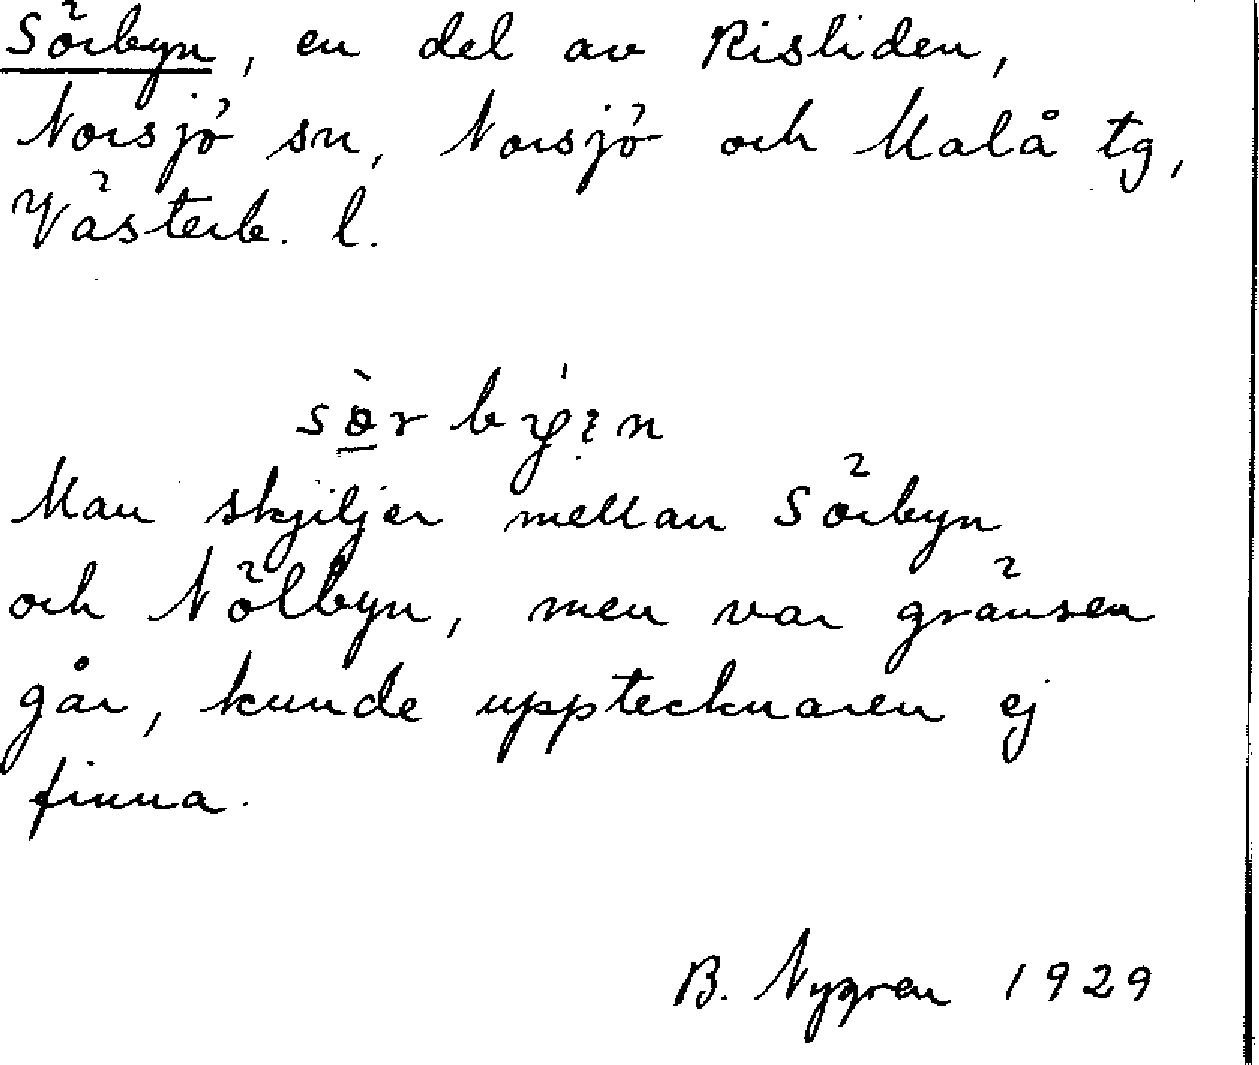 Sörbyn, en del av Risliden,
Norsjö sn, Norsjö och Malå tg,
Västerb. l.
Man skjiljer mellan Sörbyn
och Nölbyn, men var gränsen
går, kunde upptecknaren ej
finna.
B. Nygren 1929